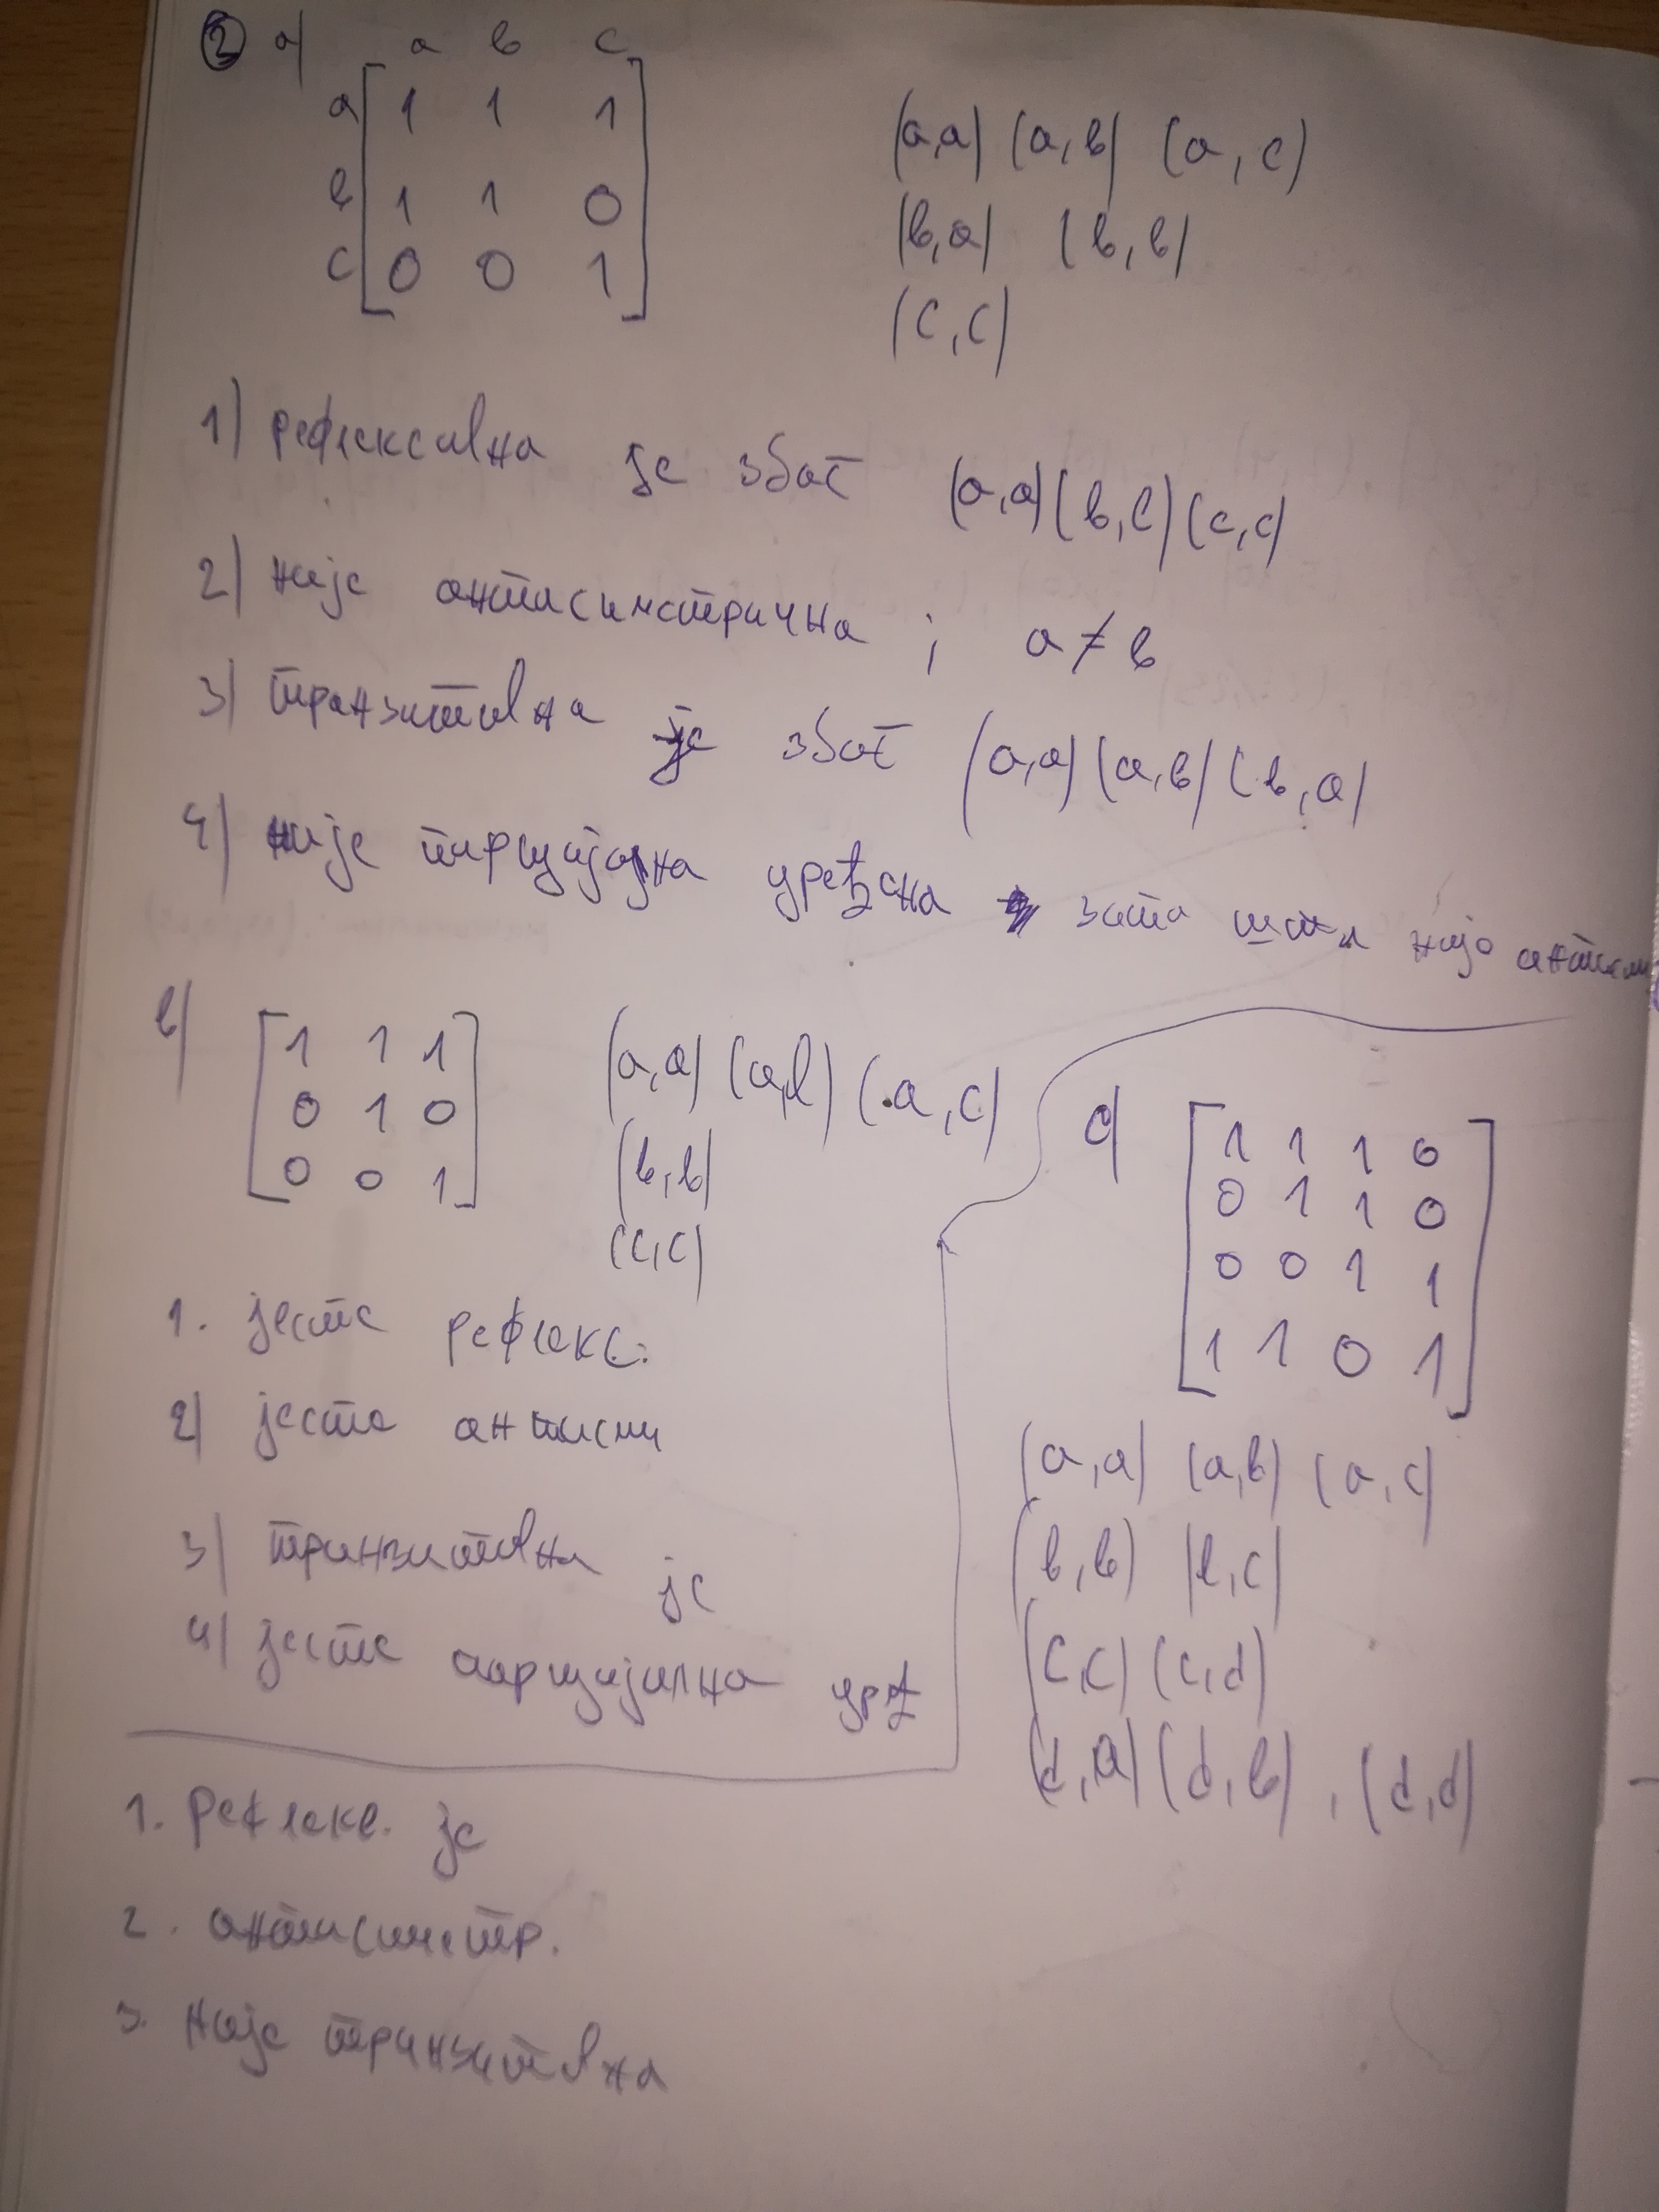 2 а)
а в с
а 1 1 1
в 1 1 0
с 0 0 1
(а,а) (а,в) (а,с)
(в,а) (в,в)
(с,с)
1) рефлексивна је због (а,а) (в,в) (с,с)
2) није антисиметрична ; а ≠ в
3) транзитивна је због (а,а) (а,в) (в,а)
4) није парцијална уређена зато што није антисим
в)
1 1 1
0 1 0
0 0 1
(а,а) (а,в) (а,с)
(в,в)
(с,с)
1. јесте рефлекс.
2) јесте антисим
3) транзитивна је
4) јесте парцијална уређ
с)
1 1 1 0
0 1 1 0
0 0 1 1
1 1 0 1
(a,a) (a,b) (a,c)
(b,b) (b,c)
(c,c) (c,d)
(d,a) (d,b) , (d,d)
1. Рефлекс. је
2. антисиметр.
3. није транзитивна